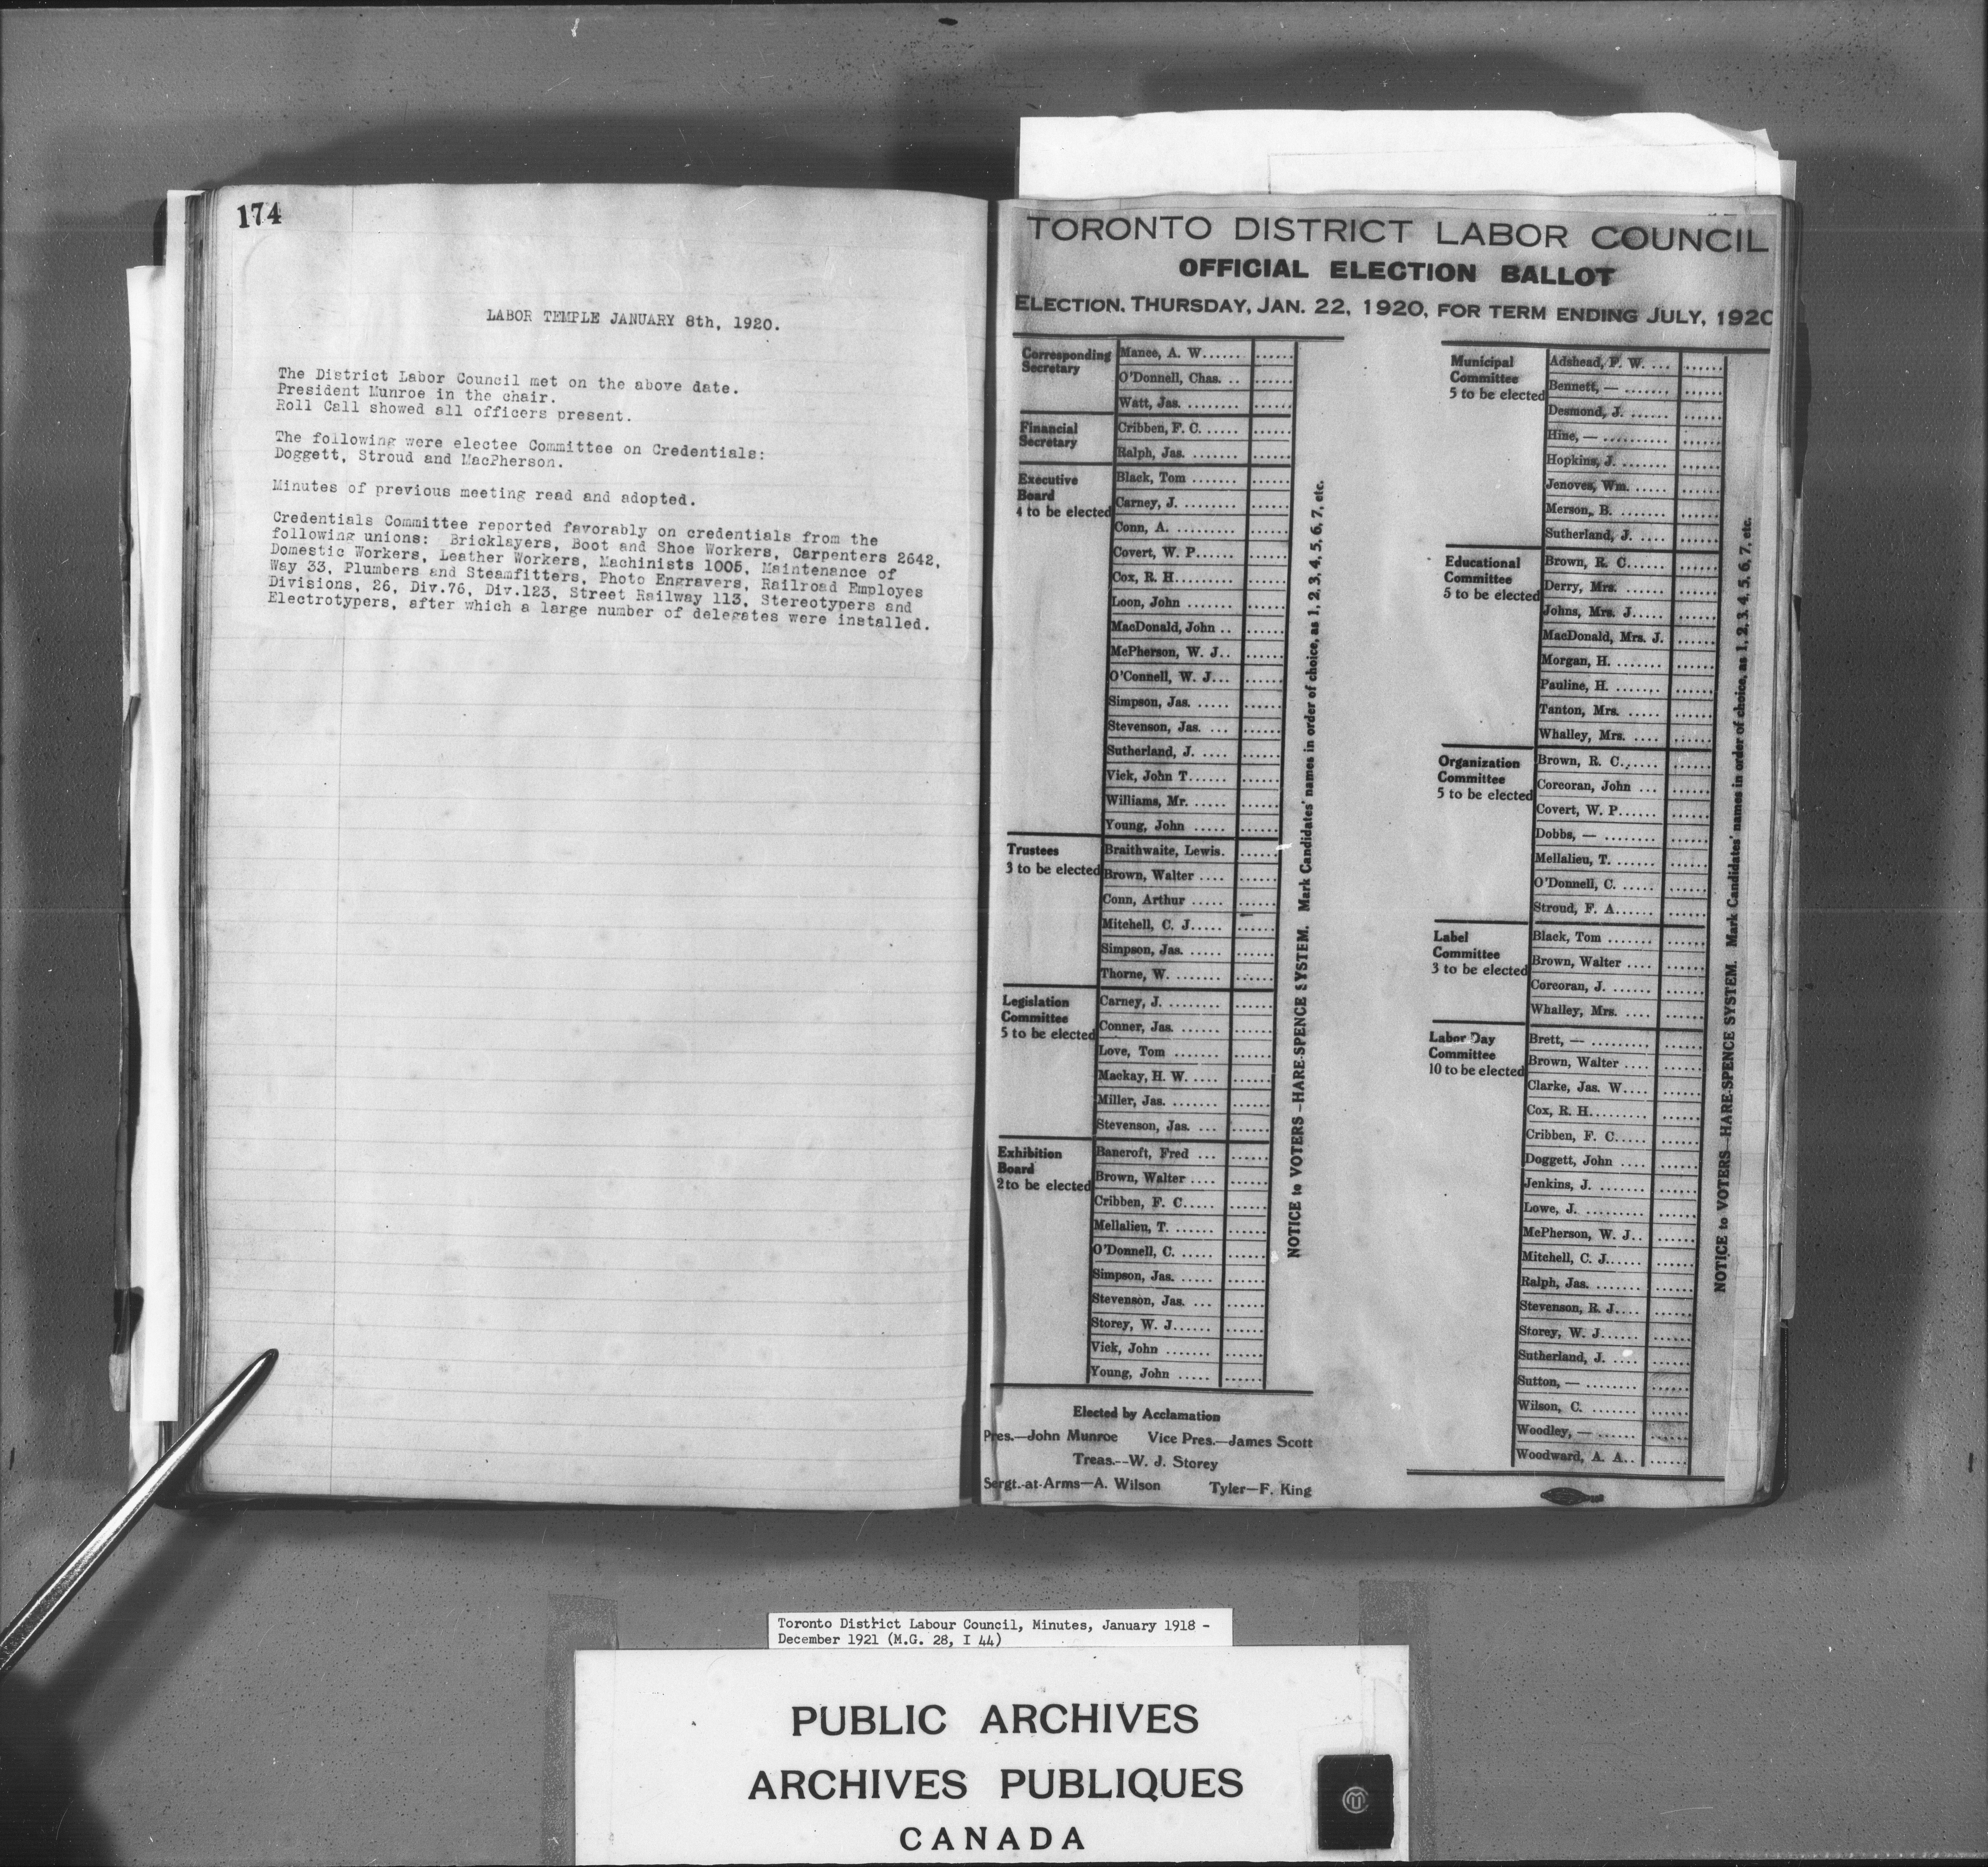 174
LABOR TEMPLE JANUARY 8th, 1920.
The District Labor Council met on the above date.
President Munroe in the chair.
Roll Call showed all officers present.
The following were electee Committee on Credentials:
Doggett, Stroud and MacPherson.
Minutes of previous meeting read and adopted.
Credentials Committee reported favorably on credentials from the
following unions: Bricklayers, Boot and Shoe Workers, Carpenters 2642,
Domestic Workers, Leather Workers, Machinists 1005, Maintenance of
Way 33, Plumbers and Steamfitters, Photo Engravers, Railroad Employes
Divisions, 26, Div.76, Div.123, Street Railway 113, Stereotypers and
Electrotypers, after which a large number of delegates were installed.
TORONTO DISTRICT LABOR COUNCIL
OFFICIAL ELECTION BALLOT
ELECTION, THURSDAY, JAN. 22, 1920, FOR TERM ENDING JULY, 1920
Corresponding
Secretary
Mance, A. W......
O'Donnell, Chas. ..
Watt, Jas. ........
Financial
Secretary
Cribben, F. C. .....
Ralph, Jas. .......
Executive
Board
4 to be elected
Black, Tom .......
Carney, J. ........
Conn, A. ..........
Covert, W. P......
Cox, R. H.........
Loon, John .......
MacDonald, John ..
McPherson, W. J..
O'Connell, W. J...
Simpson, Jas. .....
Stevenson, Jas. ...
Sutherland, J. ....
Vick, John T......
Williams, Mr. .....
Young, John .....
Trustees
3 to be elected
Braithwaite, Lewis.
Brown, Walter ....
Conn, Arthur .....
Mitchell, C. J.....
Simpson, Jas. .....
Thorne, W. ........
Legislation
Committee
5 to be elected
Carney, J. ........
Conner, Jas. ......
Love, Tom .......
Mackay, H. W. .....
Miller, Jas. ........
Stevenson, Jas. ...
Exhibition
Board
2 to be elected
Bancroft, Fred ...
Brown, Walter ....
Cribben, F. C.....
Mellalieu, T. .......
O'Donnell, C. .....
Simpson, Jas. .....
Stevenson, Jas. ...
Storey, W. J......
Vick, John .......
Young, John .....
NOTICE to VOTERS-HARE-SPENCE SYSTEM. Mark Candidates' names in order of choice, as 1, 2, 3, 4, 5, 6, 7, etc.
Elected by Acclamation
Pres.—John Munroe Vice Pres.—James Scott
Treas.--W. J. Storey
Sergt.-at-Arms—A. Wilson Tyler—F. King
Municipal
Committee
5 to be elected
Adshead, F. W. ...
Bennett, — .......
Desmond, J. ......
Hine, — ..........
Hopkins, J. .......
Jenoves, Wm. .....
Merson, B. .......
Sutherland, J. ....
Educational
Committee
5 to be elected
Brown, R. C......
Derry, Mrs. ......
Johns, Mrs. J.....
MacDonald, Mrs. J.
Morgan, H. .......
Pauline, H. .......
Tanton, Mrs. .....
Whalley, Mrs. ....
Organization
Committee
5 to be elected
Brown, R. C......
Corcoran, John ...
Covert, W. P......
Dobbs, — ........
Mellalieu, T. ......
O'Donnell, C. .....
Stroud, F. A......
Label
Committee
3 to be elected
Black, Tom .......
Brown, Walter ....
Corcoran, J. ......
Whalley, Mrs. ....
Labor Day
Committee
10 to be elected
Brett, — .........
Brown, Walter ....
Clarke, Jas. W....
Cox, R. H.........
Cribben, F. C.....
Doggett, John ....
Jenkins, J. .......
Lowe, J. .........
McPherson, W. J..
Mitchell, C. J......
Ralph, Jas. .......
Stevenson, R. J....
Storey, W. J......
Sutherland, J. ....
Sutton, — ........
Wilson, C. .......
Woodley, — ......
Woodward, A. A..
NOTICE to VOTERS—HARE-SPENCE SYSTEM. Mark Candidates' names in order of choice, as 1, 2, 3, 4, 5, 6, 7, etc.
Toronto District Labour Council, Minutes, January 1918 -
December 1921 (M.G. 28, I 44)
PUBLIC ARCHIVES
ARCHIVES PUBLIQUES
CANADA